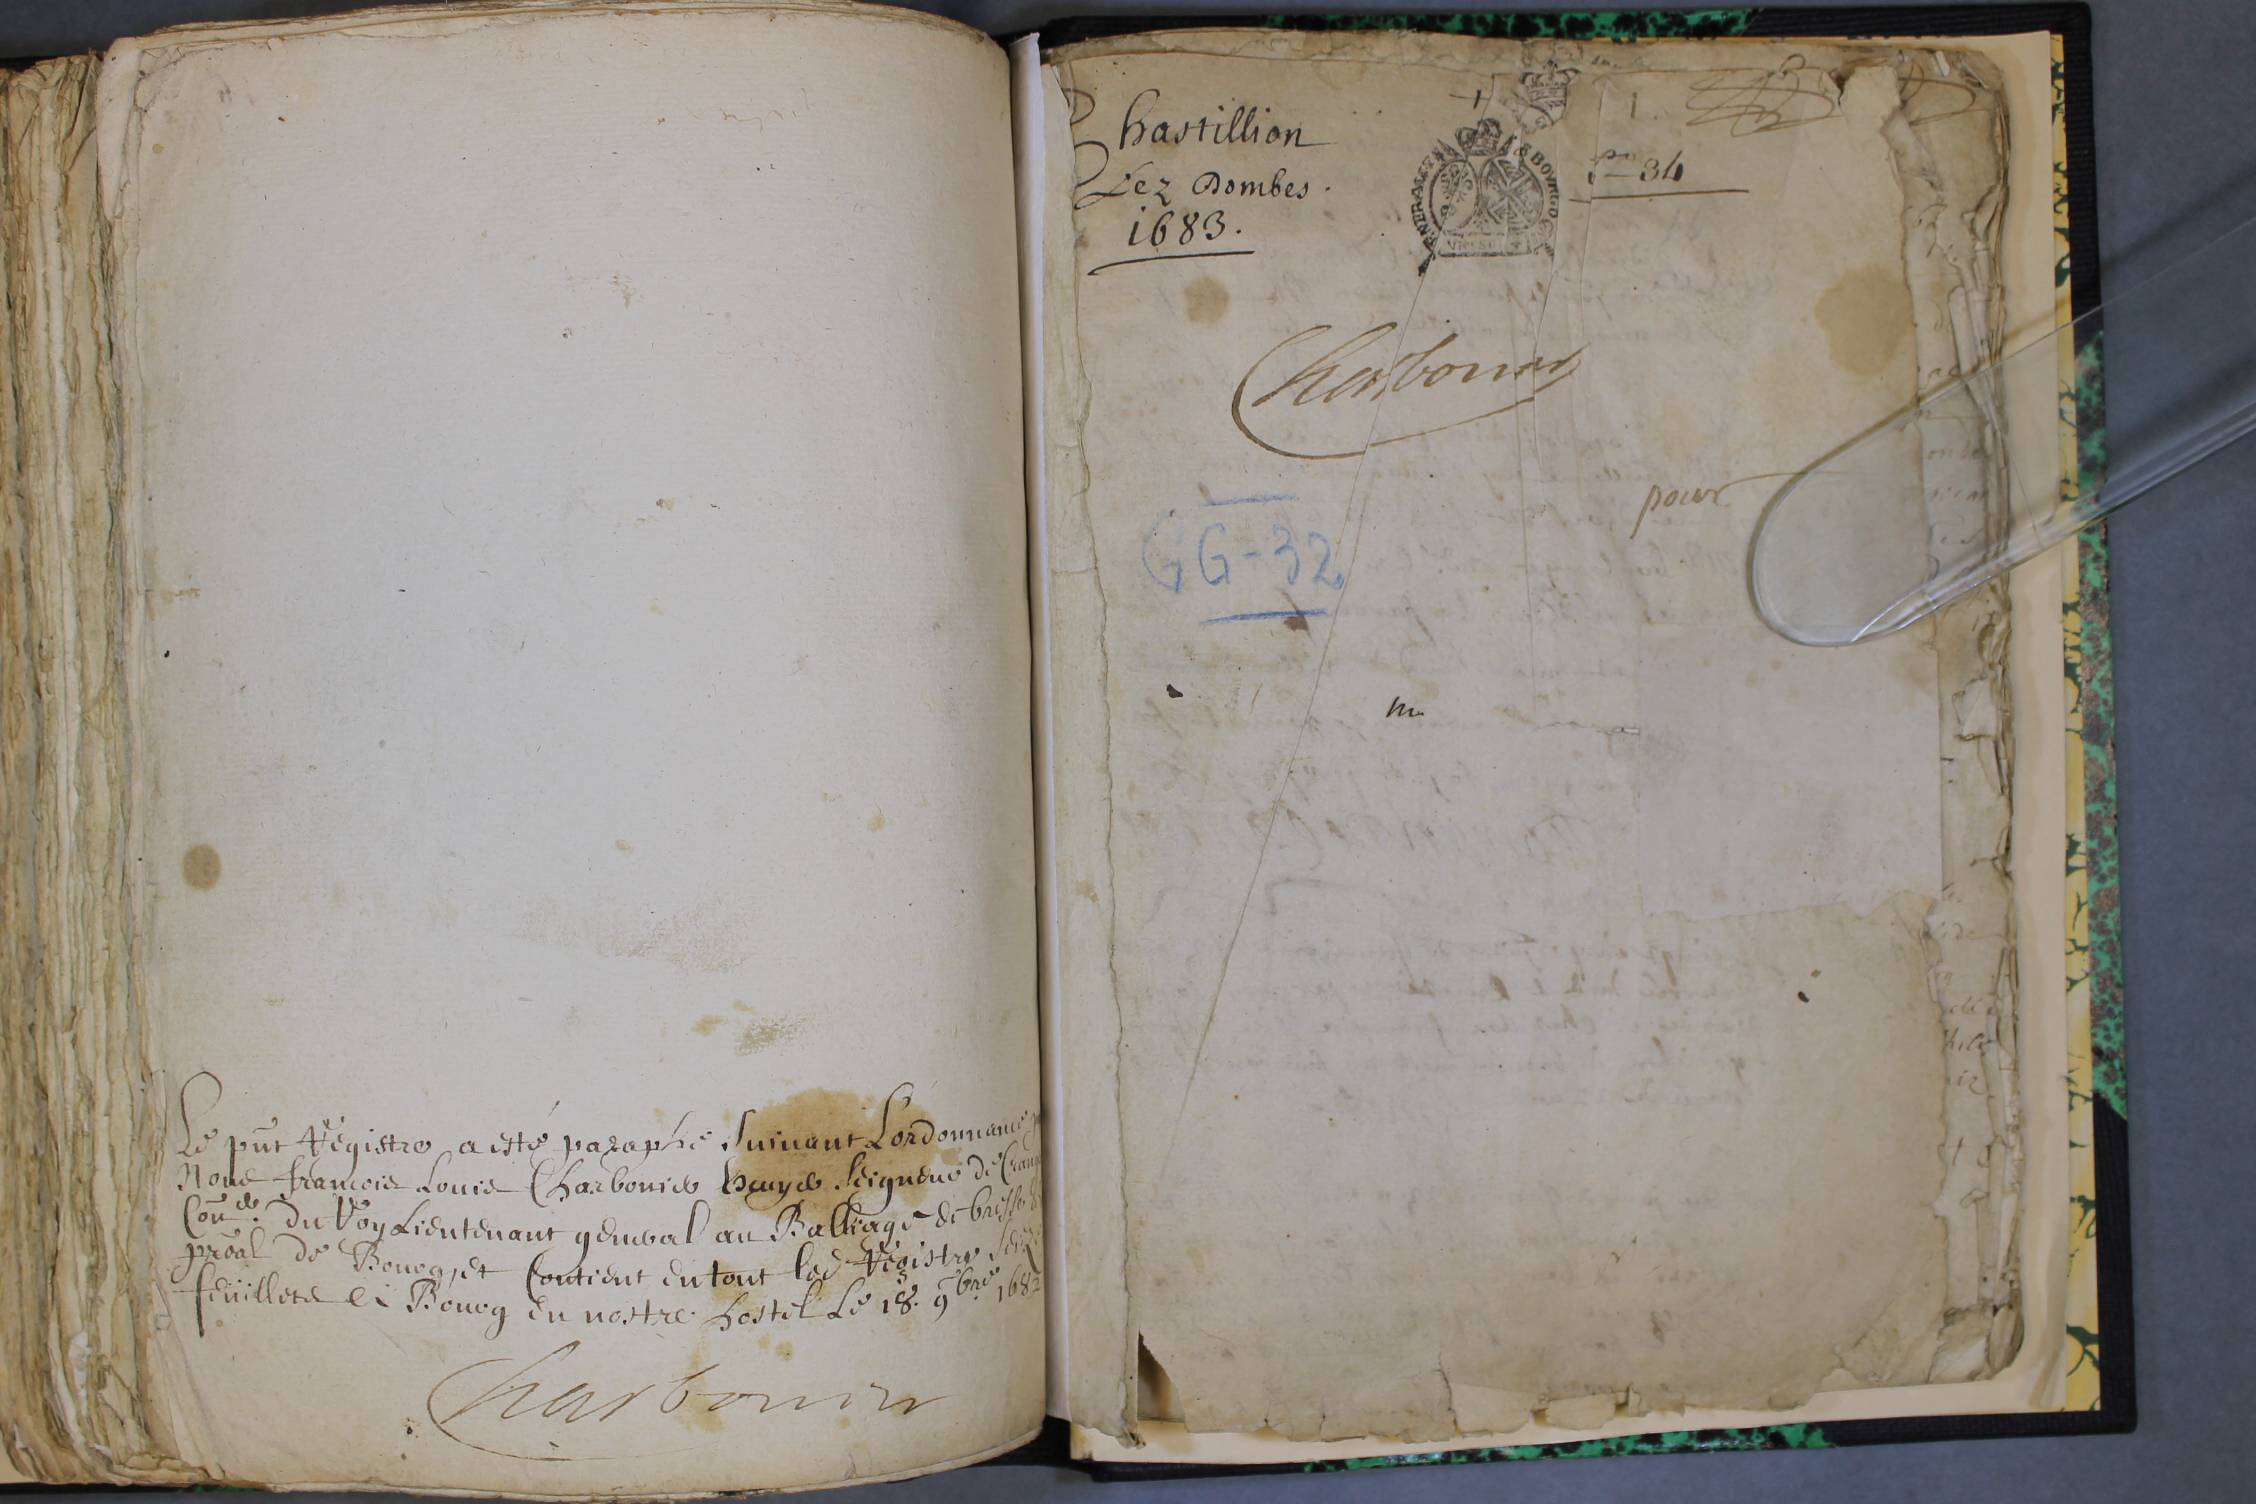 Le pnt Registre a esté paraphé suivant Lordonnance
Nous francois Louis Charbonier Escuyer Seigneur de
Coner du Roy Lieutenant general au Balliage de bresse
pñal de Bourg, et Contient en tout led Registre seize
feuilletz a Bourg en nostre hostel Le 18. 9bre 1682
Charbonier
Chastillion
Lez Dombes.
1683.
1.
34
Charbonier
pour
GG-32